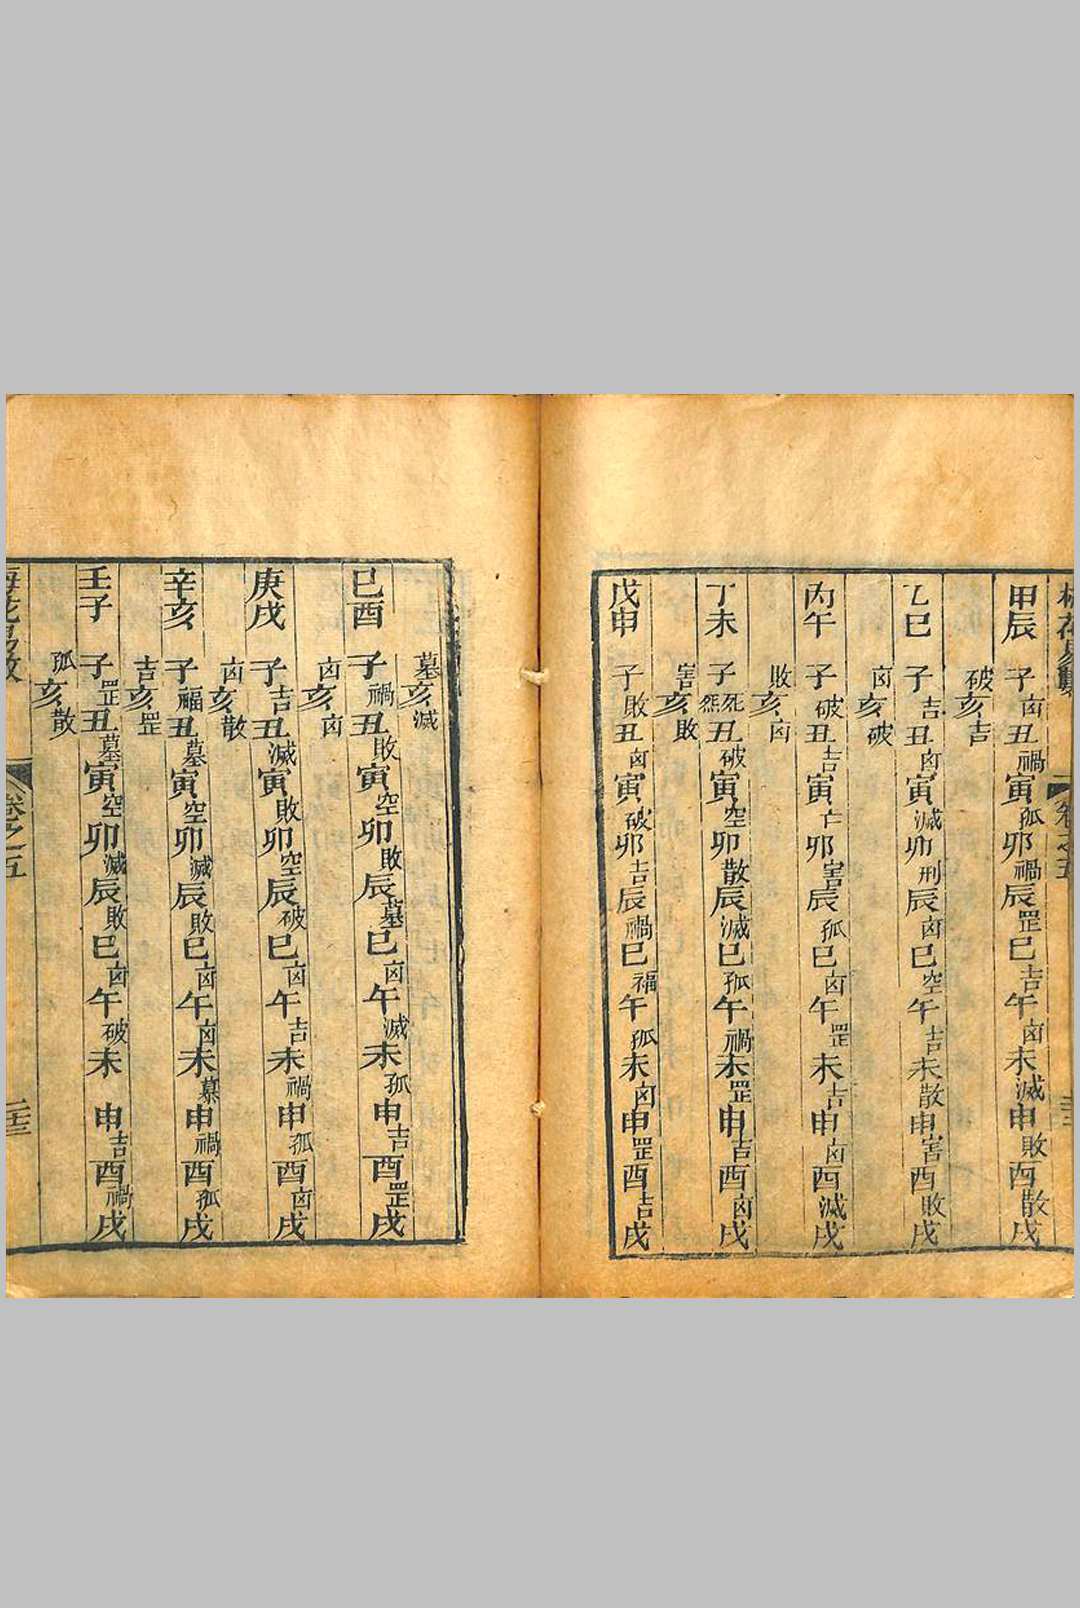 梅花易數 卷之五
甲辰 子凶丑禍寅孤卯禍辰罡巳吉午凶未滅申敗酉散戌
破亥吉
乙巳 子吉丑凶寅滅卯刑辰凶巳空午吉未散申害酉敗戌
凶亥破
丙午 子破丑吉寅亡卯害辰孤巳凶午罡未吉申凶酉滅戌
敗亥凶
丁未 子死丑破寅空卯散辰滅巳孤午禍未罡申吉酉凶戌
害亥敗
戊申 子敗丑凶寅破卯吉辰禍巳福午孤未凶申罡酉吉戌
墓亥滅
己酉 子禍丑敗寅空卯敗辰墓巳凶午滅未孤申吉酉罡戌
凶亥凶
庚戌 子吉丑滅寅敗卯空辰破巳凶午吉未禍申孤酉凶戌
凶亥散
辛亥 子福丑墓寅空卯滅辰敗巳凶午凶未墓申禍酉孤戌
吉亥罡
壬子 子罡丑墓寅空卯滅辰敗巳凶午破未申吉酉禍戌
孤亥散
梅花易數 卷之五